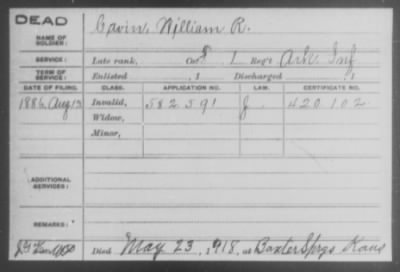 DEAD
NAME OF SOLDIER: Cavin, William R.
SERVICE: Late rank, Co. L Reg't Ark Inf
TERM OF SERVICE: Enlisted , 1 Discharged , 1
DATE OF FILING. CLASS. APPLICATION NO. LAW. CERTIFICATE NO.
1886, Aug 13 Invalid, 582.591 J. 420.102
Widow,
Minor,
ADDITIONAL SERVICES:
REMARKS:
Died May 23, 1918, at Baxter Spgs Kans